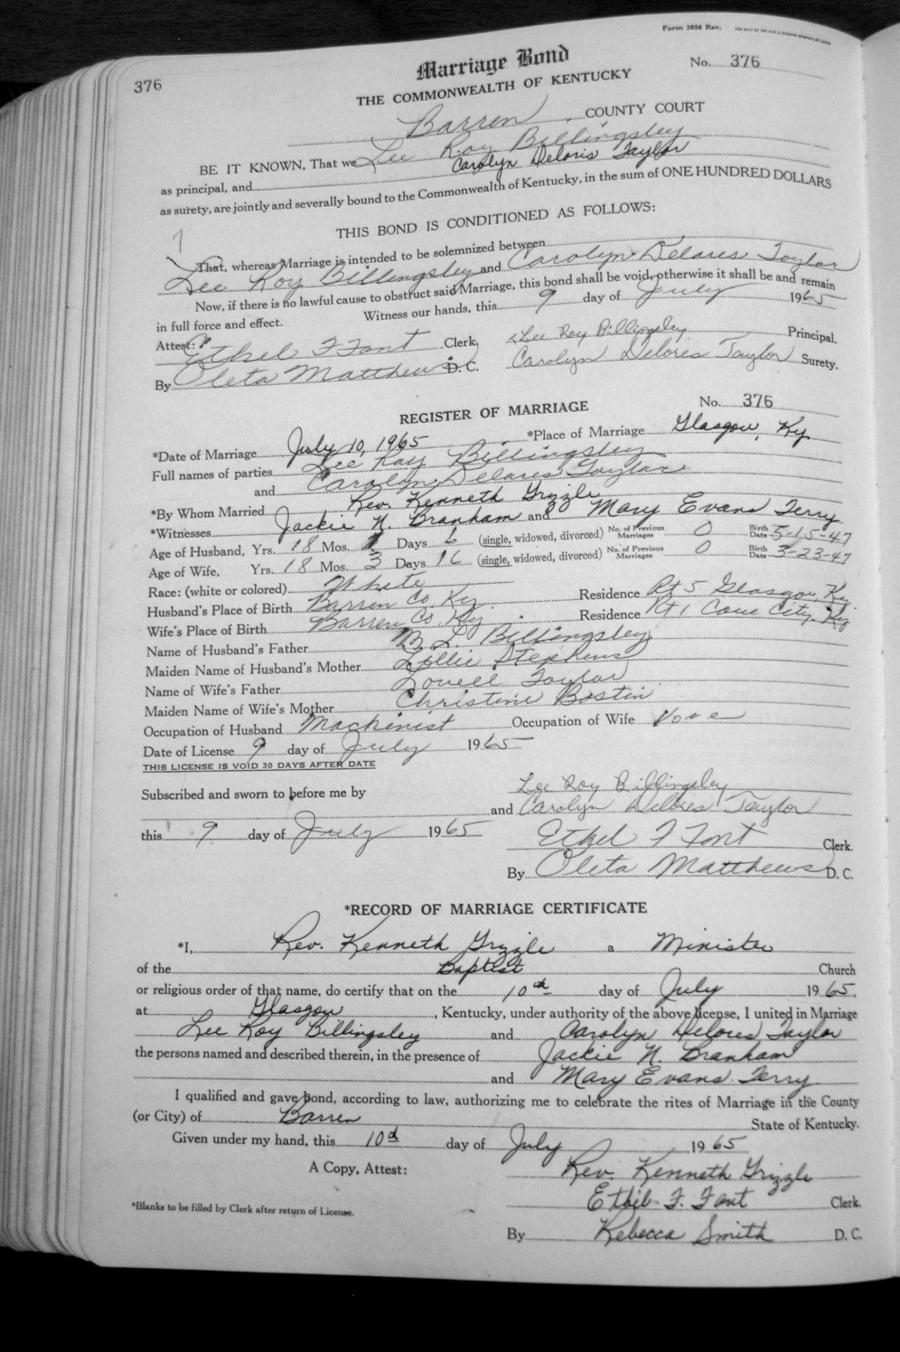 Form 3654 Rev.
376
Marriage Bond
No. 376
THE COMMONWEALTH OF KENTUCKY
Barren COUNTY COURT
BE IT KNOWN, That we Lee Roy Billingsley
as principal, and Carolyn Deloris Taylor
as surety, are jointly and severally bound to the Commonwealth of Kentucky, in the sum of ONE HUNDRED DOLLARS
THIS BOND IS CONDITIONED AS FOLLOWS:
That, whereas Marriage is intended to be solemnized between
Lee Roy Billingsley and Carolyn Delores Taylor
Now, if there is no lawful cause to obstruct said Marriage, this bond shall be void, otherwise it shall be and remain
in full force and effect. Witness our hands, this 9 day of July 1965
Attest: Ethel F Fant Clerk, Lee Roy Billingsley Principal.
By Oleta Matthews D. C. Carolyn Delores Taylor Surety.
REGISTER OF MARRIAGE
No. 376
*Date of Marriage July 10, 1965 *Place of Marriage Glasgow, Ky.
Full names of parties Lee Roy Billingsley
and Carolyn Delores Taylor
*By Whom Married Rev. Kenneth Grizzle
*Witnesses Jackie N. Branham and Mary Evans Terry
Age of Husband, Yrs. 18 Mos. 1 Days 6 (single, widowed, divorced) No. of Previous Marriages 0 Birth Date 5-15-47
Age of Wife, Yrs. 18 Mos. 3 Days 16 (single, widowed, divorced) No. of Previous Marriages 0 Birth Date 3-23-47
Race: (white or colored) White
Husband's Place of Birth Barren Co Ky. Residence Rt 5 Glasgow Ky.
Wife's Place of Birth Barren Co Ky Residence Rt 1 Cave City, Ky
Name of Husband's Father M. L. Billingsley
Maiden Name of Husband's Mother Lillie Stephens
Name of Wife's Father Lovell Taylor
Maiden Name of Wife's Mother Christine Bostin
Occupation of Husband Machinist Occupation of Wife None
Date of License 9 day of July 1965
THIS LICENSE IS VOID 30 DAYS AFTER DATE
Subscribed and sworn to before me by Lee Roy Billingsley
and Carolyn Delores Taylor
this 9 day of July 1965 Ethel F Fant Clerk.
By Oleta Matthews D. C.
*RECORD OF MARRIAGE CERTIFICATE
*I, Rev. Kenneth Grizzle a Minister
of the Baptist Church
or religious order of that name, do certify that on the 10th day of July 1965,
at Glasgow, Kentucky, under authority of the above license, I united in Marriage
Lee Roy Billingsley and Carolyn Delores Taylor
the persons named and described therein, in the presence of Jackie N. Branham
and Mary Evans Terry
I qualified and gave bond, according to law, authorizing me to celebrate the rites of Marriage in the County
(or City) of Barren State of Kentucky.
Given under my hand, this 10th day of July 1965
A Copy, Attest: Rev. Kenneth Grizzle
Ethel F. Fant Clerk.
*Blanks to be filled by Clerk after return of License.
By Rebecca Smith D. C.